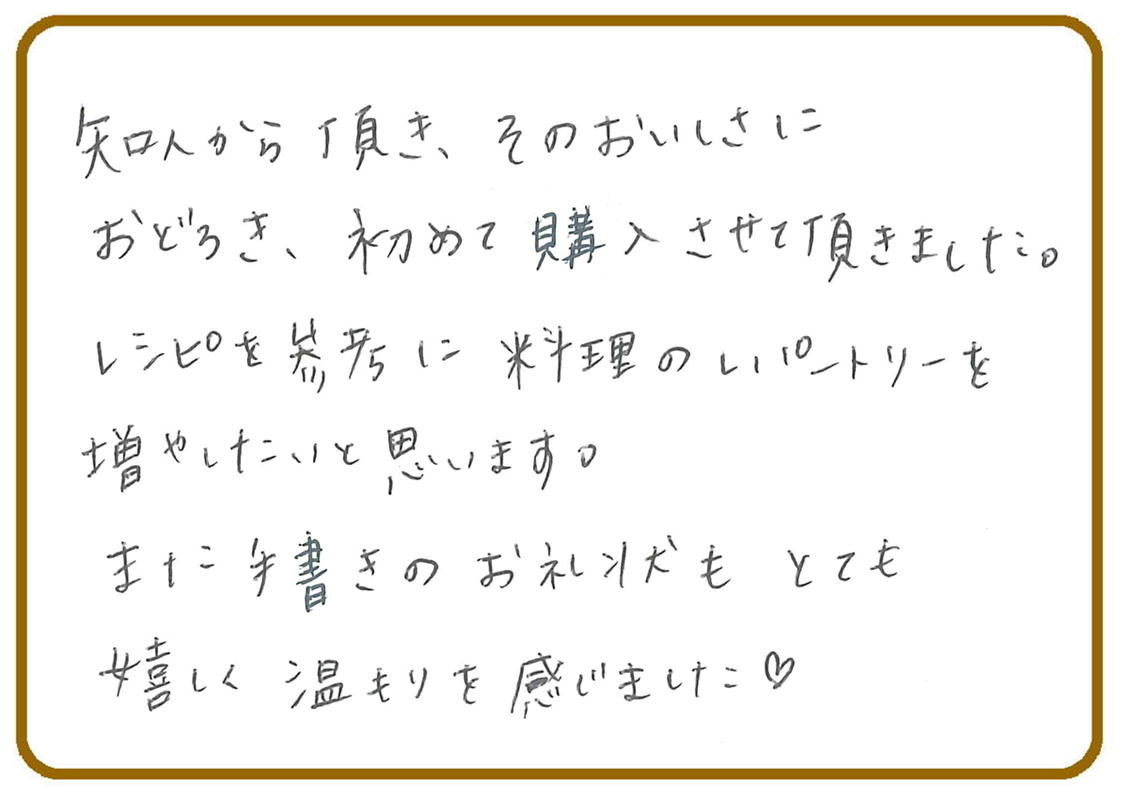 知人から頂き、そのおいしさに
おどろき、初めて購入させて頂きました。
レシピを参考に料理のレパートリーを
増やしたいと思います。
また手書きのお礼状もとても
嬉しく温もりを感じました♡